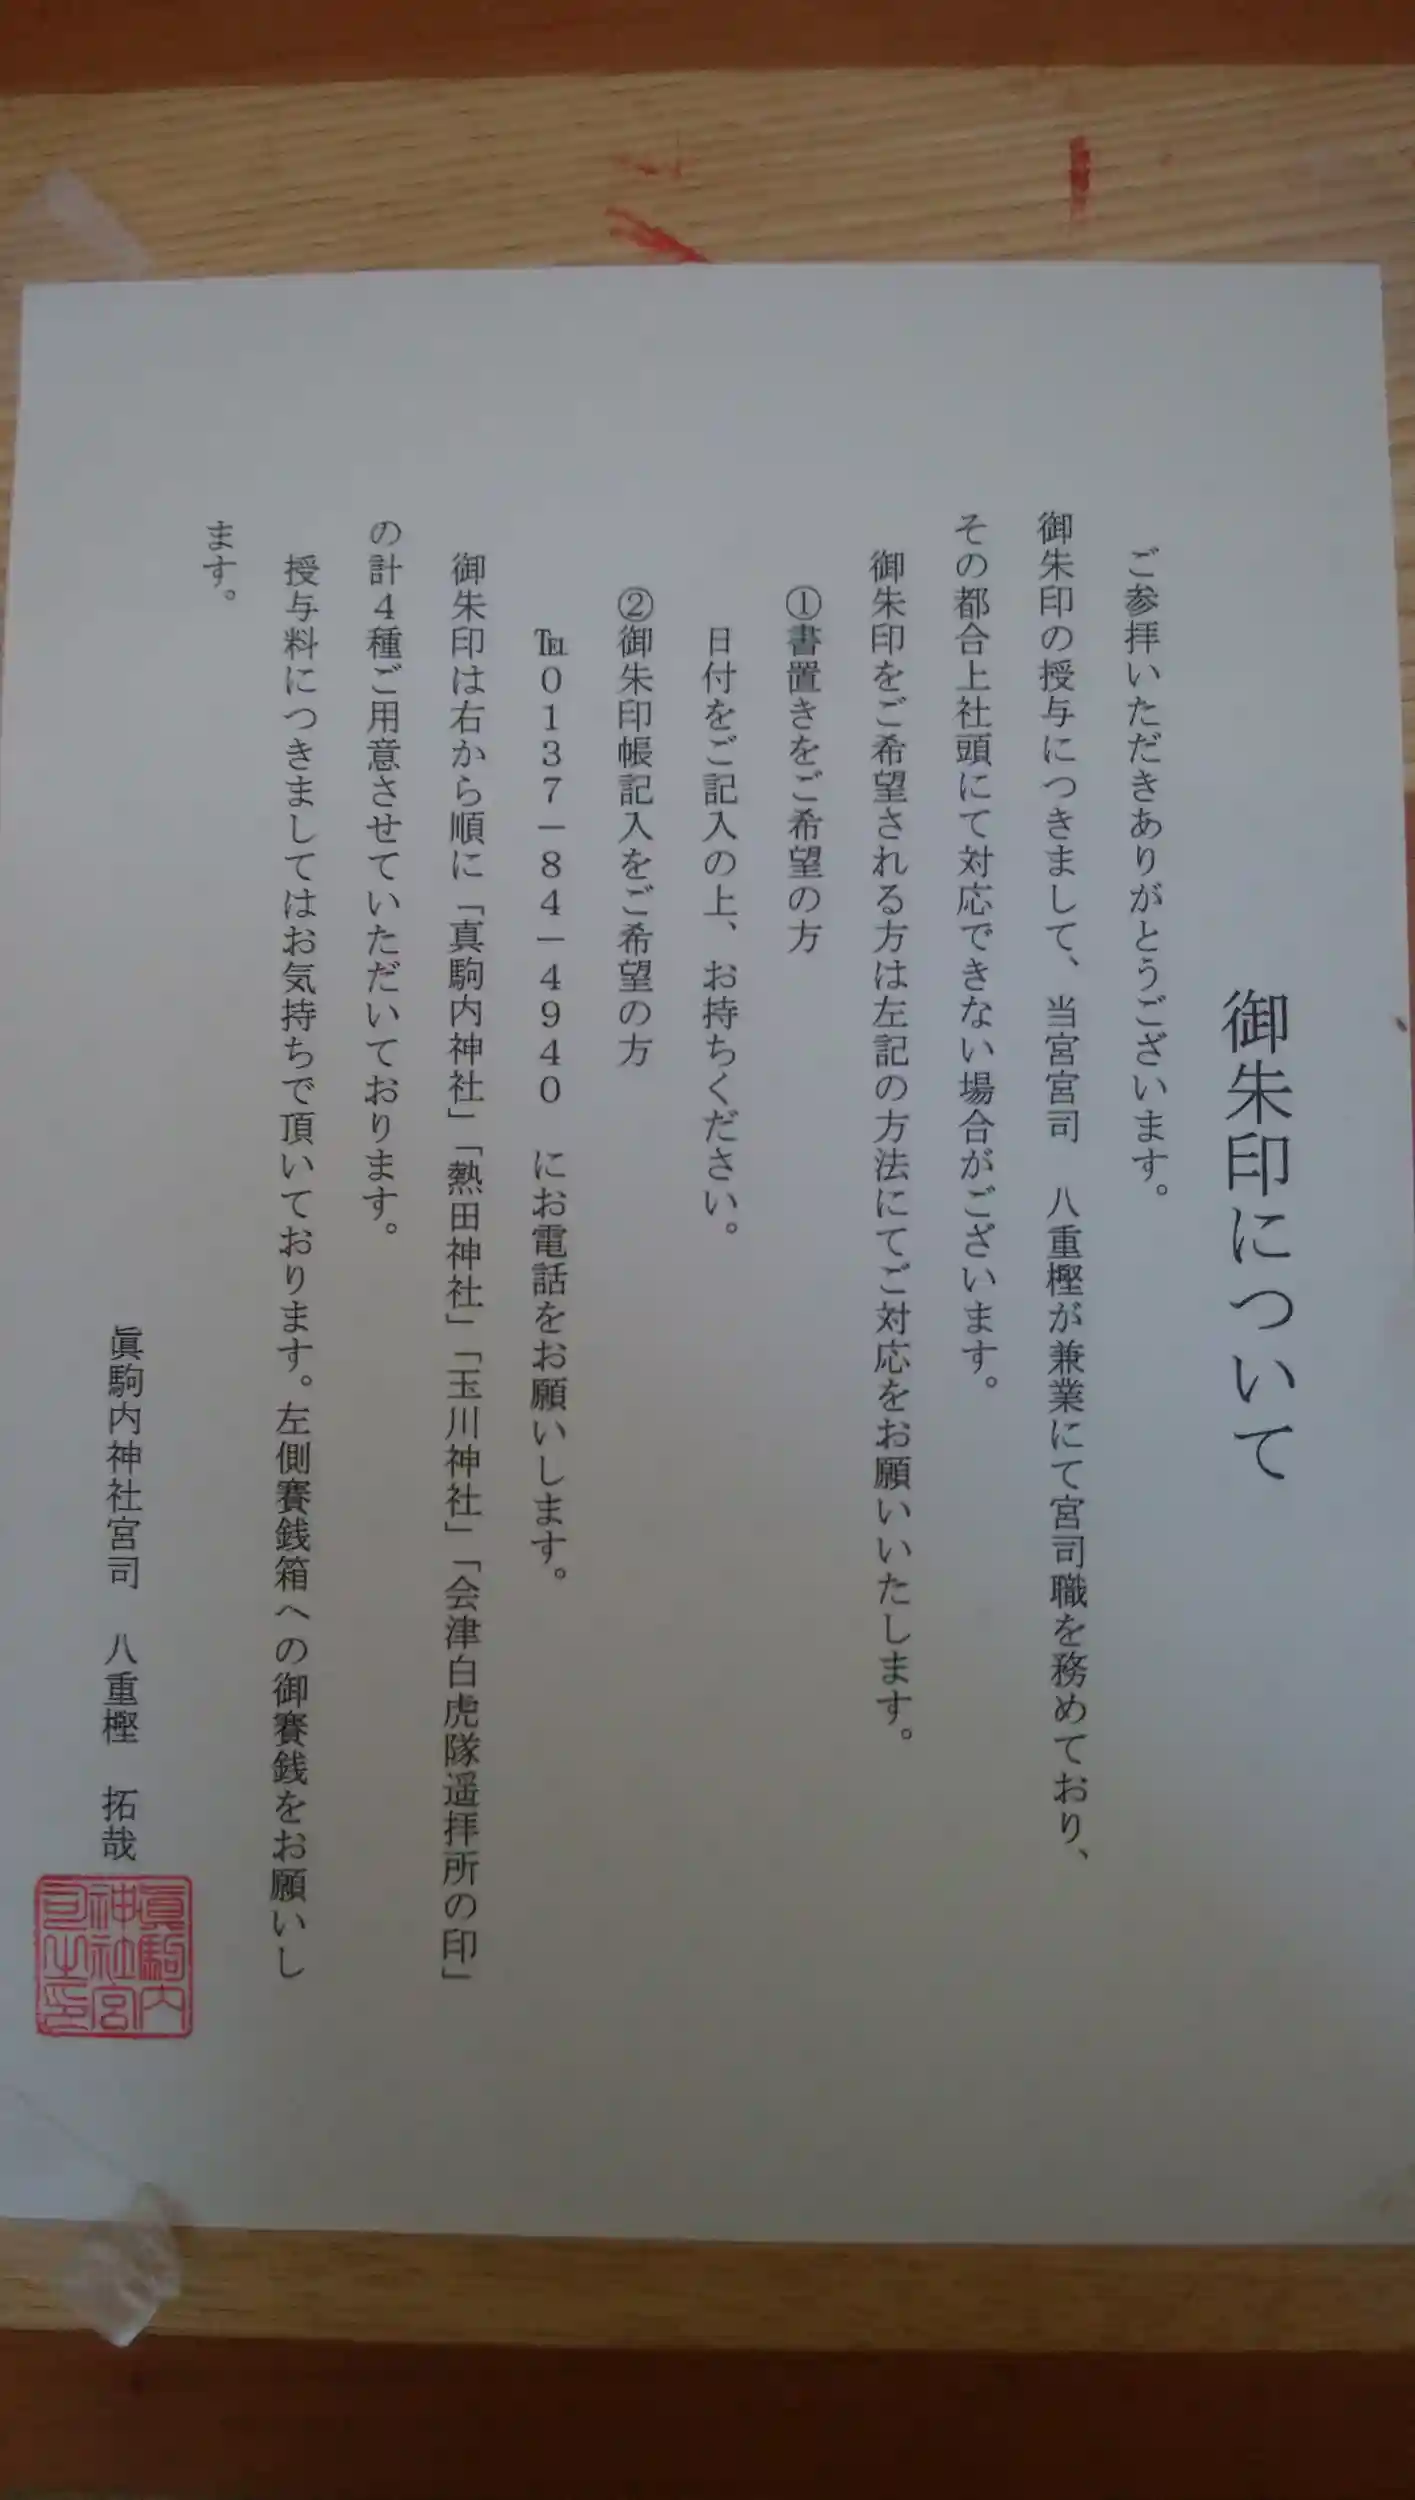 御朱印について
ご参拝いただきありがとうございます。
御朱印の授与につきまして、当宮宮司　八重樫が兼業にて宮司職を務めており、
その都合上社頭にて対応できない場合がございます。
御朱印をご希望される方は左記の方法にてご対応をお願いいたします。
①書置きをご希望の方
日付をご記入の上、お持ちください。
②御朱印帳記入をご希望の方
℡０１３７－８４－４９４０　にお電話をお願いします。
御朱印は右から順に「真駒内神社」「熱田神社」「玉川神社」「会津白虎隊遥拝所の印」
の計４種ご用意させていただいております。
授与料につきましてはお気持ちで頂いております。左側賽銭箱への御賽銭をお願いし
ます。
眞駒内神社宮司　八重樫　拓哉
眞駒内
神社宮
司之印